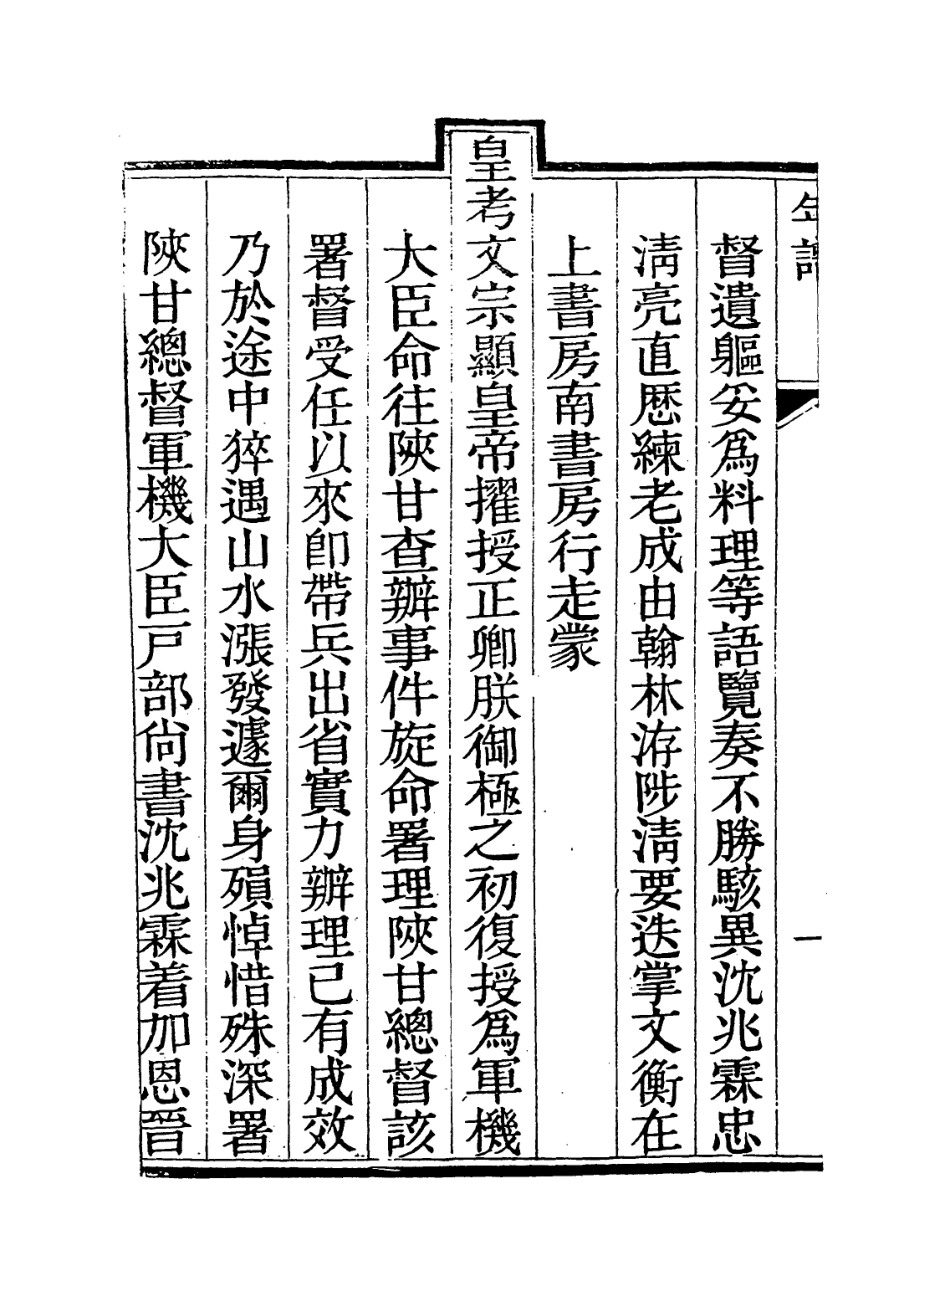 年譜
一
督遺軀妥爲料理等語覽奏不勝駭異沈兆霖忠
淸亮直歷練老成由翰林洊陟淸要迭掌文衡在
上書房南書房行走蒙
皇考文宗顯皇帝擢授正卿朕御極之初復授爲軍機
大臣命往陝甘查辦事件旋命署理陝甘總督該
署督受任以來卽帶兵出省實力辦理已有成效
乃於途中猝遇山水漲發遽爾身殞悼惜殊深署
陝甘總督軍機大臣戸部尙書沈兆霖着加恩晉